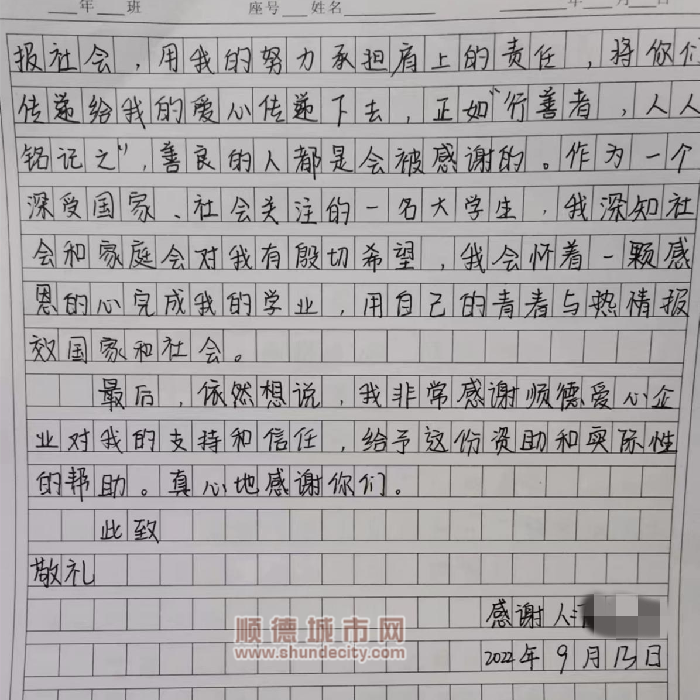 年 班 座号 姓名 年 月 日
报社会，用我的努力承担肩上的责任，将你们
传递给我的爱心传递下去，正如“行善者，人人
铭记之”，善良的人都是会被感谢的。作为一个
深受国家、社会关注的一名大学生，我深知社
会和家庭会对我有殷切希望，我会怀着一颗感
恩的心完成我的学业，用自己的青春与热情报
效国家和社会。
最后，依然想说，我非常感谢顺德爱心企
业对我的支持和信任，给予这份资助和实际性
的帮助。真心地感谢你们。
此致
敬礼
感谢人
2022年9月13日
顺德城市网
www.shundecity.com